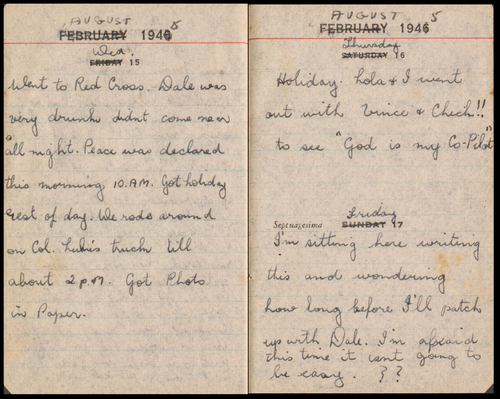 AUGUST 5
FEBRUARY 1946
Wed.
FRIDAY 15
Went to Red Cross. Dale was
very drunk didnt come near
all night. Peace was declared
this morning 10. A.M. Got holiday
rest of day. We rode around
on Col. truck till
about 2 p.m. Got Photo
in Paper.
AUGUST 5
FEBRUARY 1946
Thursday
SATURDAY 16
Holiday. Lola & I went
out with Vince & Chech!!
to see "God is my Co-Pilot"
Friday
Septuagesima SUNDAY 17
I'm sitting here writing
this and wondering
how long before I'll patch
up with Dale. I'm afraid
this time it isnt going to
be easy. ??